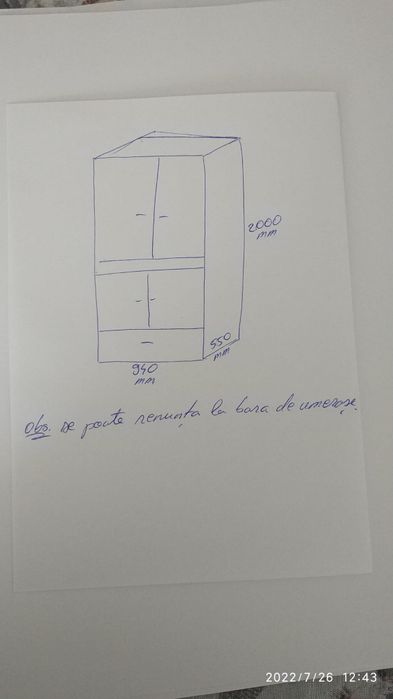 2000
mm
550
mm
940
mm
Obs. se poate renunța la bara de umerașe.
2022/7/26 12:43